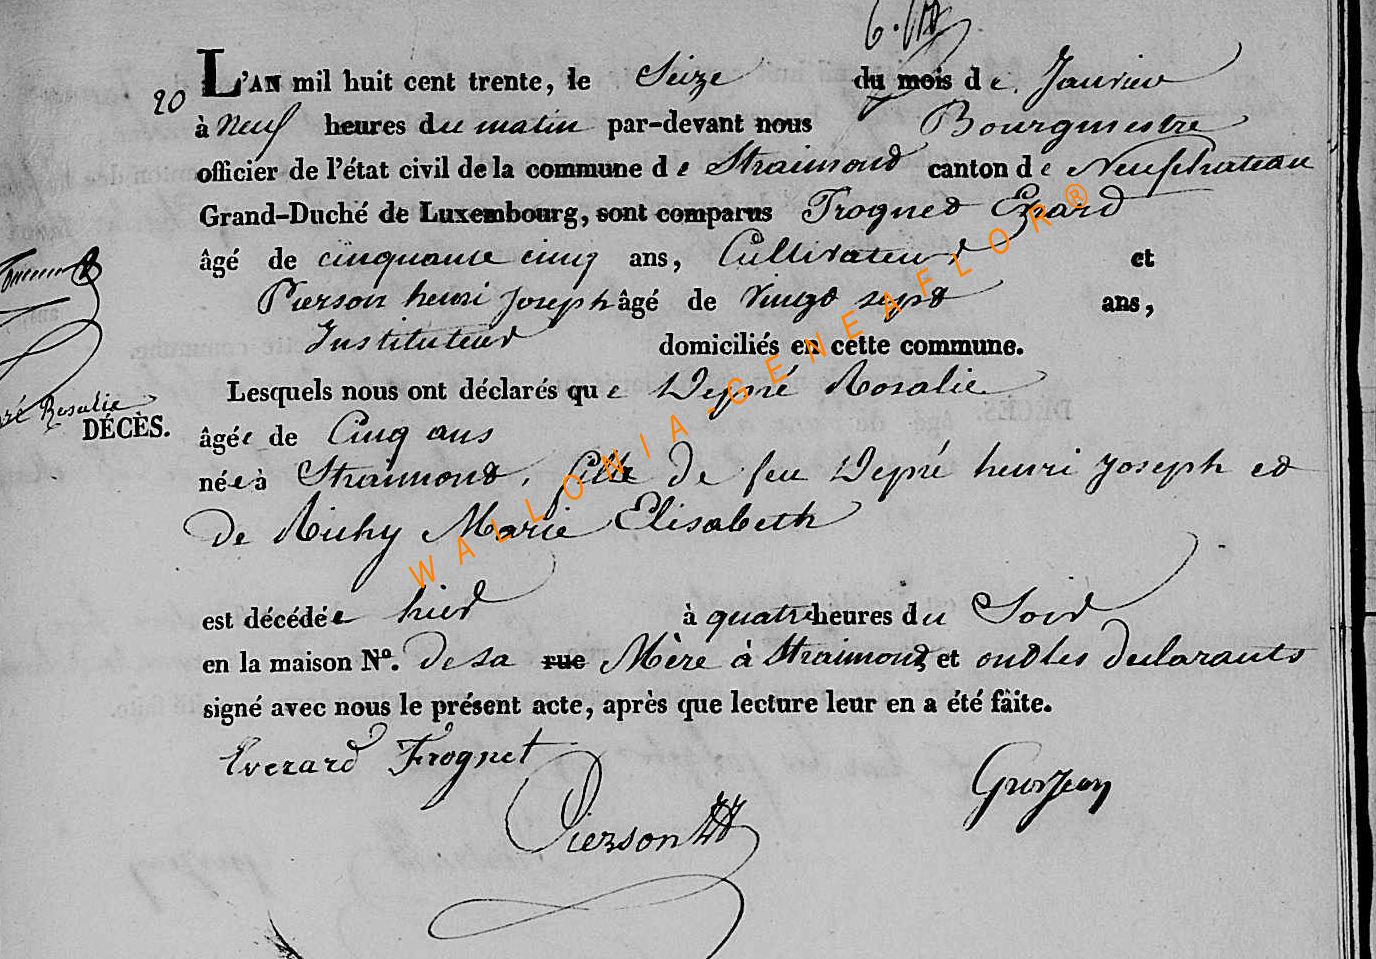 20 L'AN mil huit cent trente, le Seize du mois de Janvier
à Neuf heures du matin par-devant nous Bourgmestre
officier de l'état civil de la commune de Straimont canton de Neufchateau
Grand-Duché de Luxembourg, sont comparus Frognet Evrard
âgé de cinquante cinq ans, Cultivateur et
Pierson henri Joseph âgé de Vingt sept ans,
Instituteur domiciliés en cette commune.
Lesquels nous ont déclarés que Depré Rosalie
Rosalie
DÉCÈS.
âgée de Cinq ans
née à Straimont, fille de feu Depré henri Joseph et
de Richy Marie Elisabeth
est décédée hier à quatre heures du Soir
en la maison Nº. de sa rue Mère à Straimont et ont les declarants
signé avec nous le présent acte, après que lecture leur en a été faite.
Everard Frognet
Pierson
Grosjean
WALLONIA-GENEAFLOR®